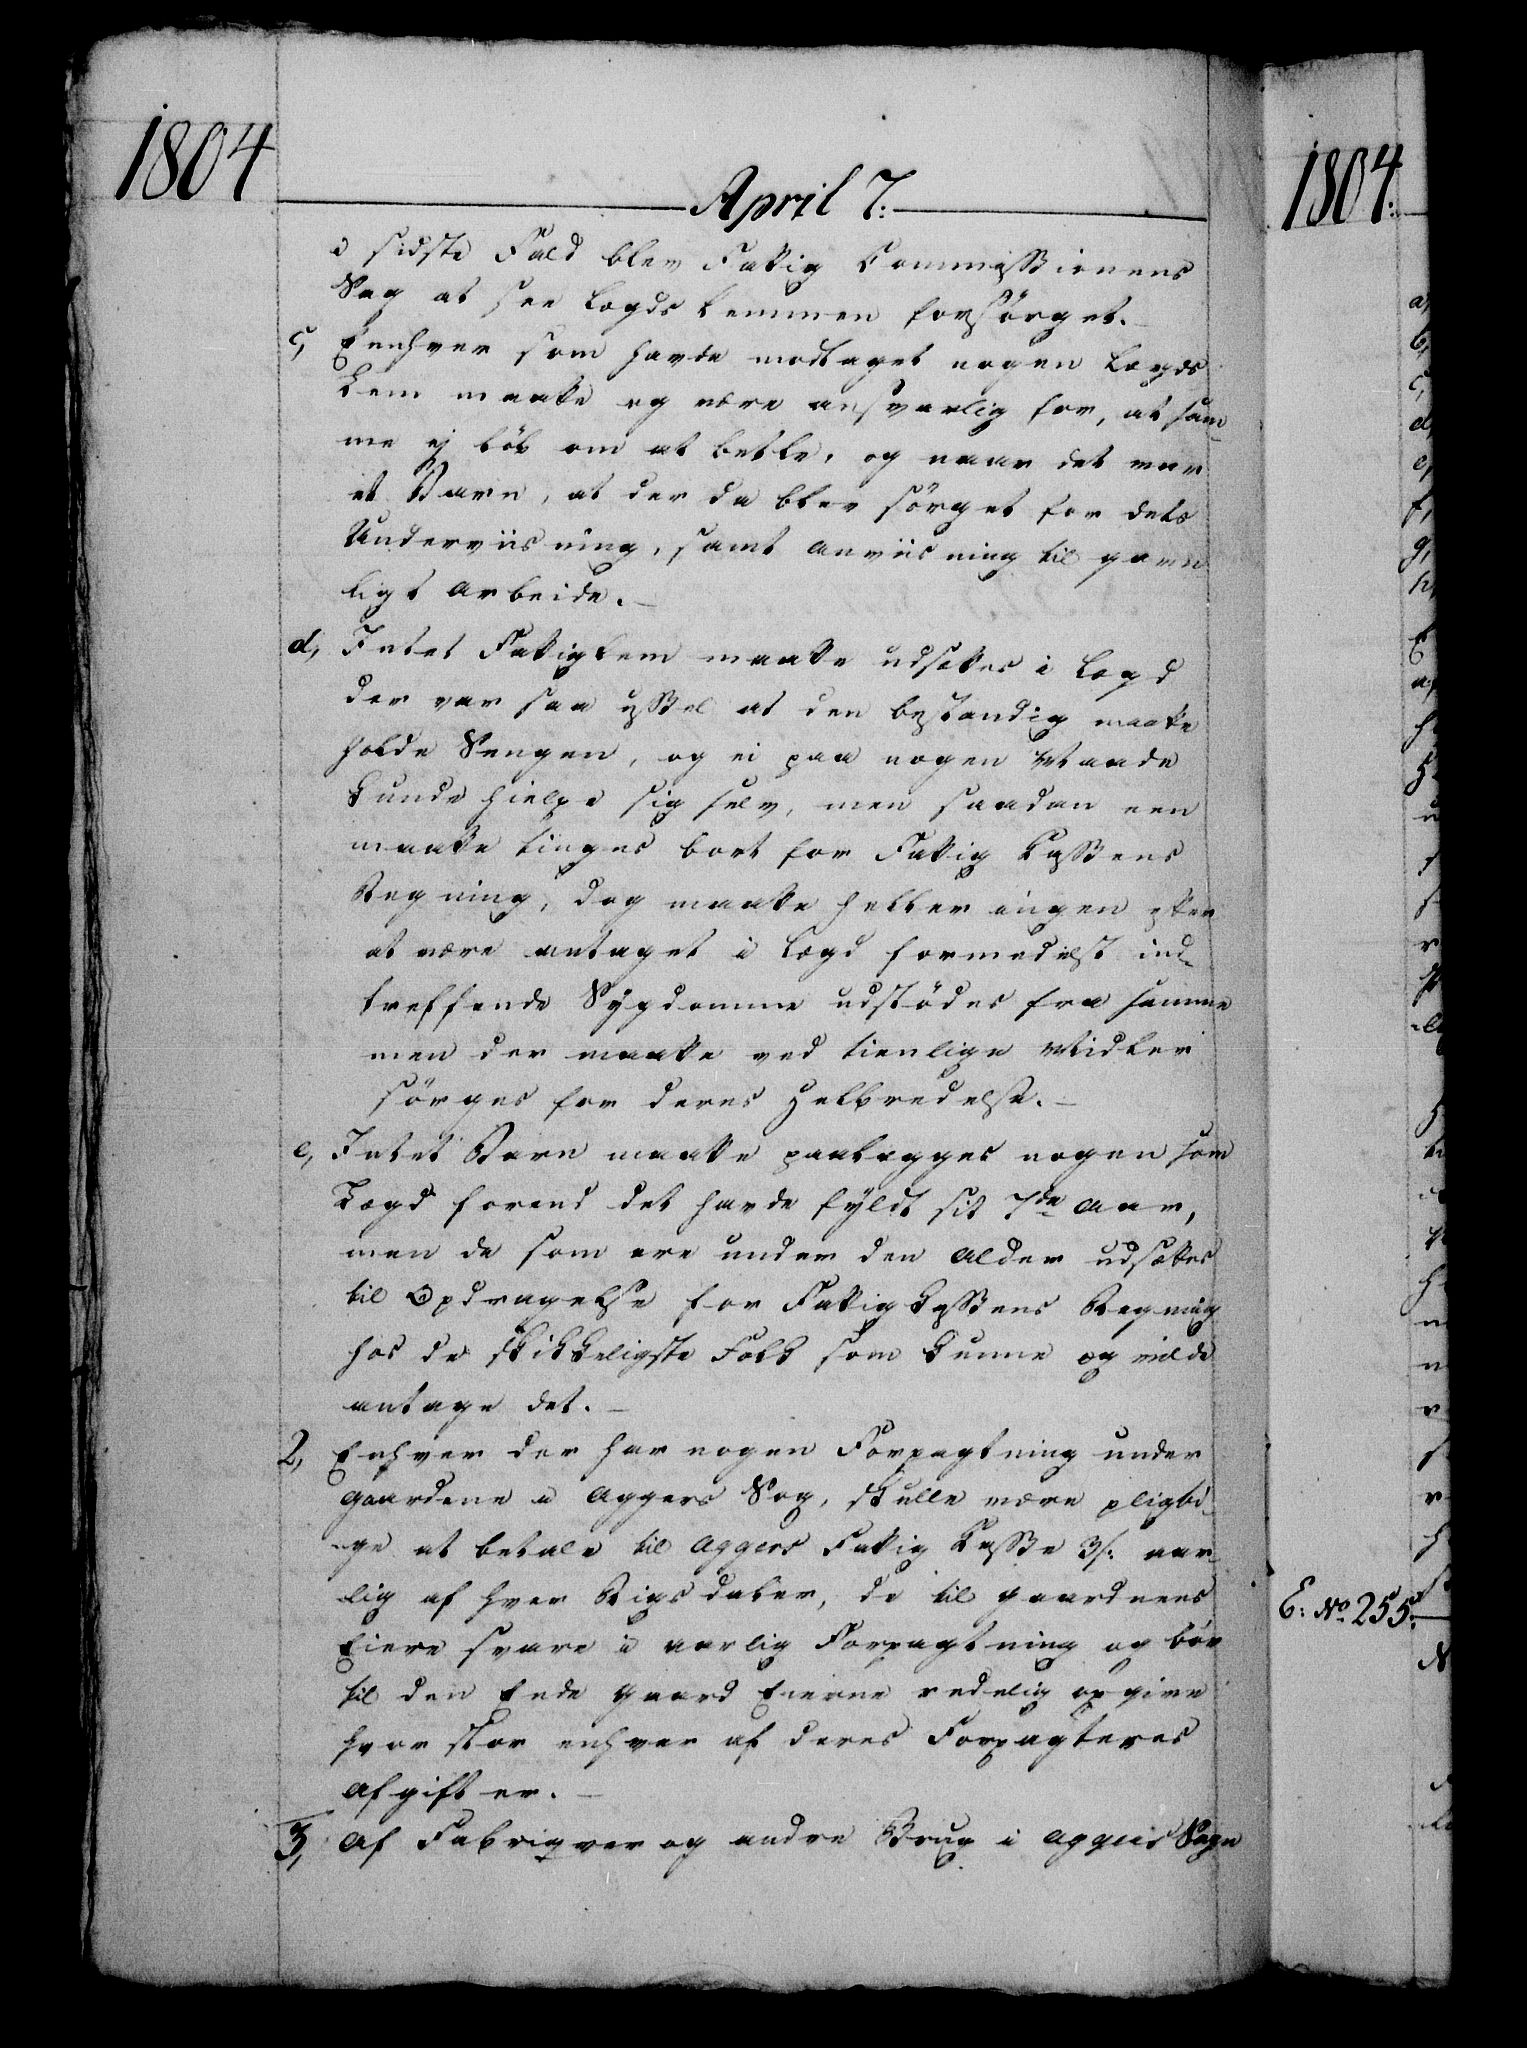 1804
April 7:
i sidste Fald blev Fattig Commissionens
Sag at see Lægds Lemmen forsørget.
c, Eenhver som havde modtaget nogen Lægds
Lem maatte og være ansvarlig for, at sam-
me ej løb om at betle, og naar det var
et Barn, at der da blev sørget for dets
Underviisning, samt anviisning til gavn
ligt Arbeide.
d, Intet Fattiglem maatte udsættes i Lægd
der var saa ussel at den bestandig maatte
holde Sengen, og ei paa nogen Maade
kunde hielpe sig selv, men saadan een
maatte tinges bort for Fattig Cassens
Regning, dog maatte heller ingen efter
at være antaget i Lægd formedelst ind-
treffende Sygdomme udstødes fra samme
men der maatte ved tienlige Midler
sørges for deres Helbredelse.
e, Intet Barn maatte paalægges nogen som
Lægd forend det havde fyldt sit 7de Aar,
men de som ere under den Alder udsættes
til Opdragelse for Fattigkassens Regning
hos de skikkeligste Folk som kunne og vilde
antage det.
2, Enhver der har nogen Forpagtning under
Gaardene i Aggers Sog, skulle være pligti-
ge at betale til Aggers Fattig Casse 3/: aar-
lig af hver Rigsdaler, de til Gaardenes
Eiere svare i aarlig Forpagtning og bør
til den Ende Gaard Eierne redelig opgive
hvor stor enhver af deres Forpagteres
Afgift er.
3, Af Fabriqver og andre Brug i Aggers Sogn
1804:
a,
b,
c,
d,
e,
f,
g,
h,
E: No 255: